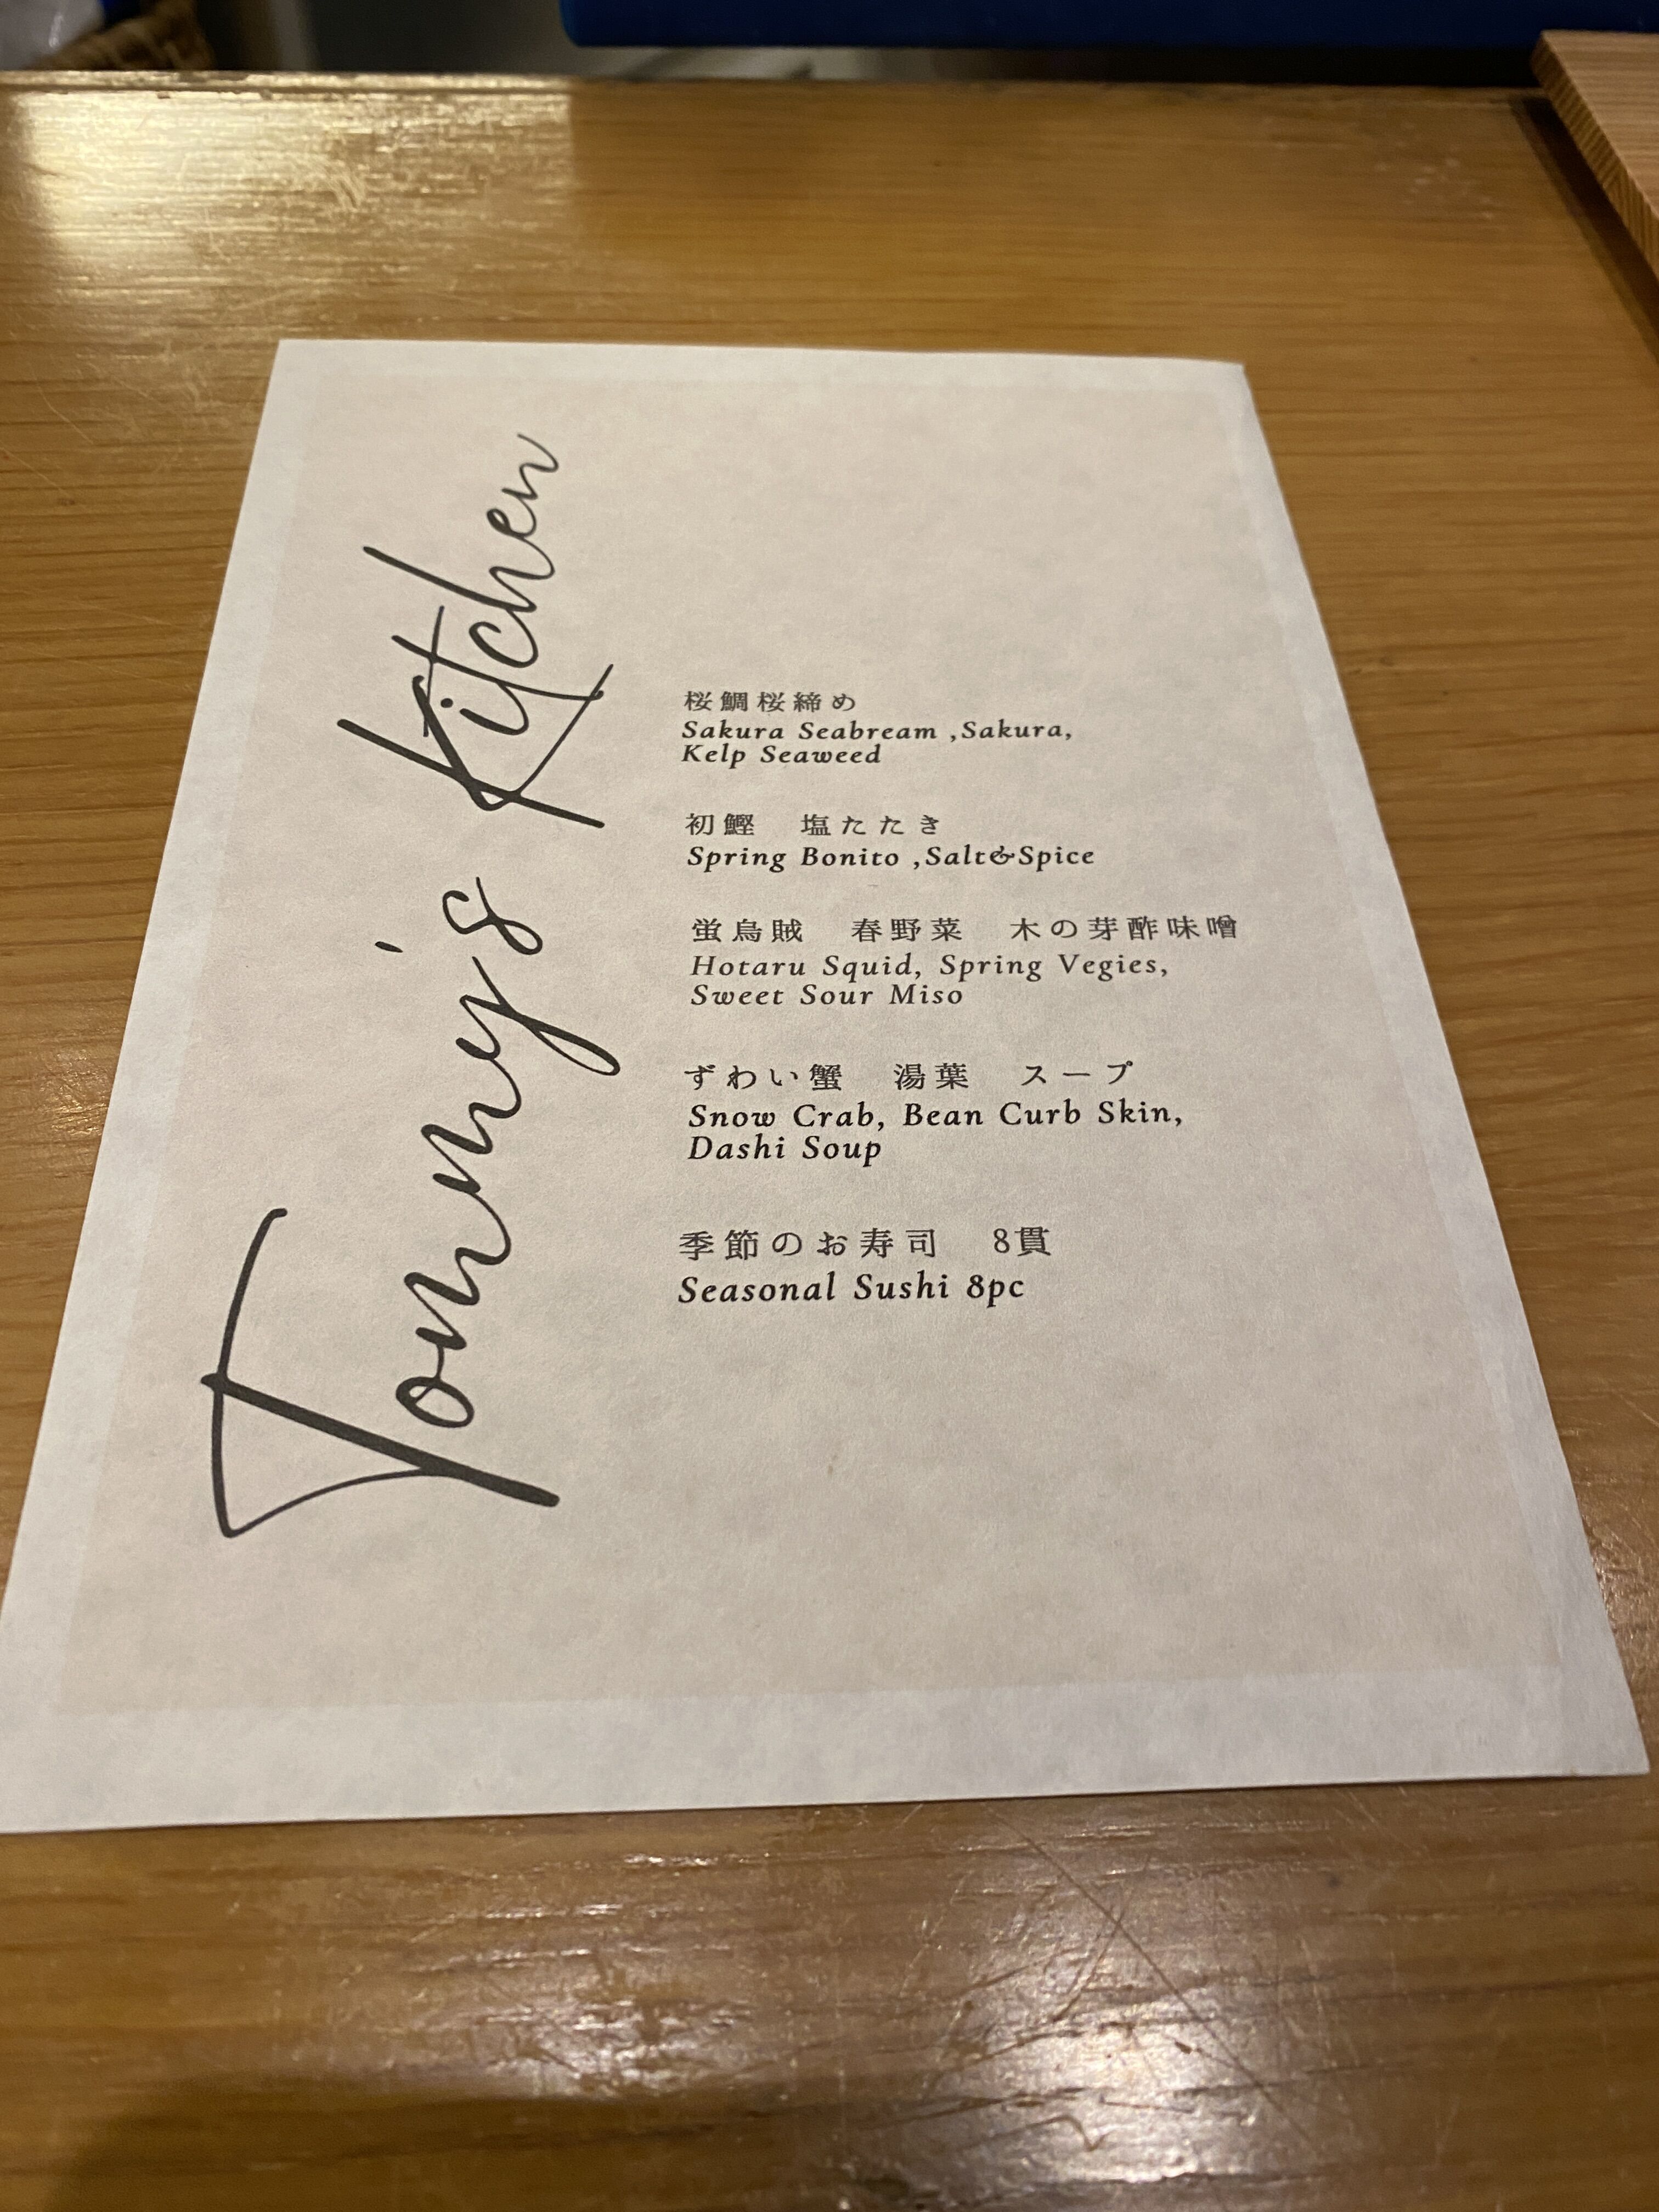 Tommy's Kitchen
桜鯛桜締め
Sakura Seabream ,Sakura,
Kelp Seaweed
初鰹　塩たたき
Spring Bonito ,Salt&Spice
蛍烏賊　春野菜　木の芽酢味噌
Hotaru Squid, Spring Vegies,
Sweet Sour Miso
ずわい蟹　湯葉　スープ
Snow Crab, Bean Curb Skin,
Dashi Soup
季節のお寿司　8貫
Seasonal Sushi 8pc